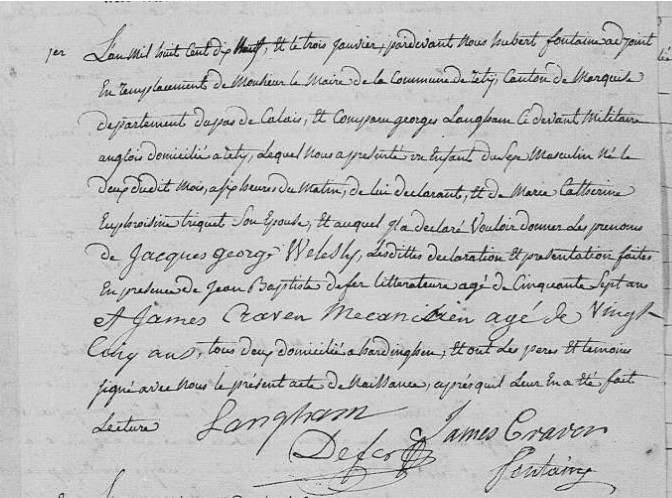 1er L'an mil huit Cent dix Neuf, et le trois Janvier, pardevant nous hubert fontaine adjoint
En remplacement de Monsieur le Maire de la Commune de rety, Canton de Marquise
departement du pas de Calais, Est Comparu georges Langham Ci devant Militaire
anglois domicilié a rety, Lequel nous a presenté un Enfant du Sexe Masculin Né le
deux dudit mois, a six heures du Matin, de lui declarant, et de Marie Catherine
Euphroisine triquet Son Epouse, et auquel il a declaré Vouloir donner Les prenoms
de Jacques george Welesly, Lesdittes declaration et presentation faites
En presence de Jean Baptiste defer litterateure agé de Cinquante Sept ans
et James Craven Mecanicien agé de Vingt
Cinq ans, tous deux domicilié a hardinghen, et ont Les peres et temoins
signé avec Nous le présent acte de Naissance, après quil Leur En a été fait
Lecture Langham
Defer James Craven
fontaine